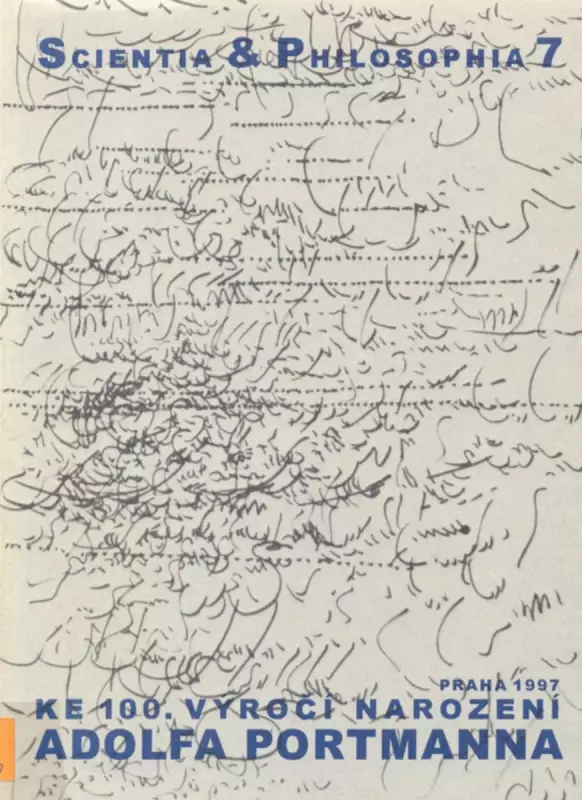 SCIENTIA & PHILOSOPHIA 7
PRAHA 1997
KE 100. VÝROČÍ NAROZENÍ
ADOLFA PORTMANNA